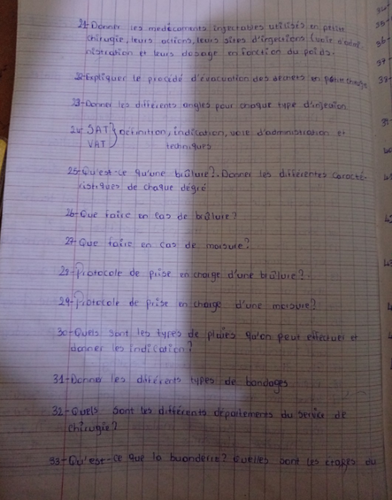 21-Donner les médicaments injectables utilisés en petite
chirurgie, leurs actions, leurs sites d'injections (voie d'admi
nistration et leurs dosage en fonction du poids.
22-Expliquer le procédé d'évacuation des déchets en petite chirurgie
23-Donner les différents angles pour chaque type d'injection
24- SAT } définition, indication, voie d'administration et
VAT techniques
25-Qu'est-ce qu'une brûlure? Donner les différentes caracté-
ristiques de chaque degré
26-Que faire en cas de brûlure?
27-Que faire en cas de morsure?
28-Protocole de prise en charge d'une brûlure?
29-Protocole de prise en charge d'une morsure?
30-Quels sont les types de plaies qu'on peut effectuer et
donner les indication?
31-Donner les différents types de bandages
32-Quels sont les différents départements du service de
chirurgie?
33-Qu'est-ce que la buanderie? Quelles sont les étapes du